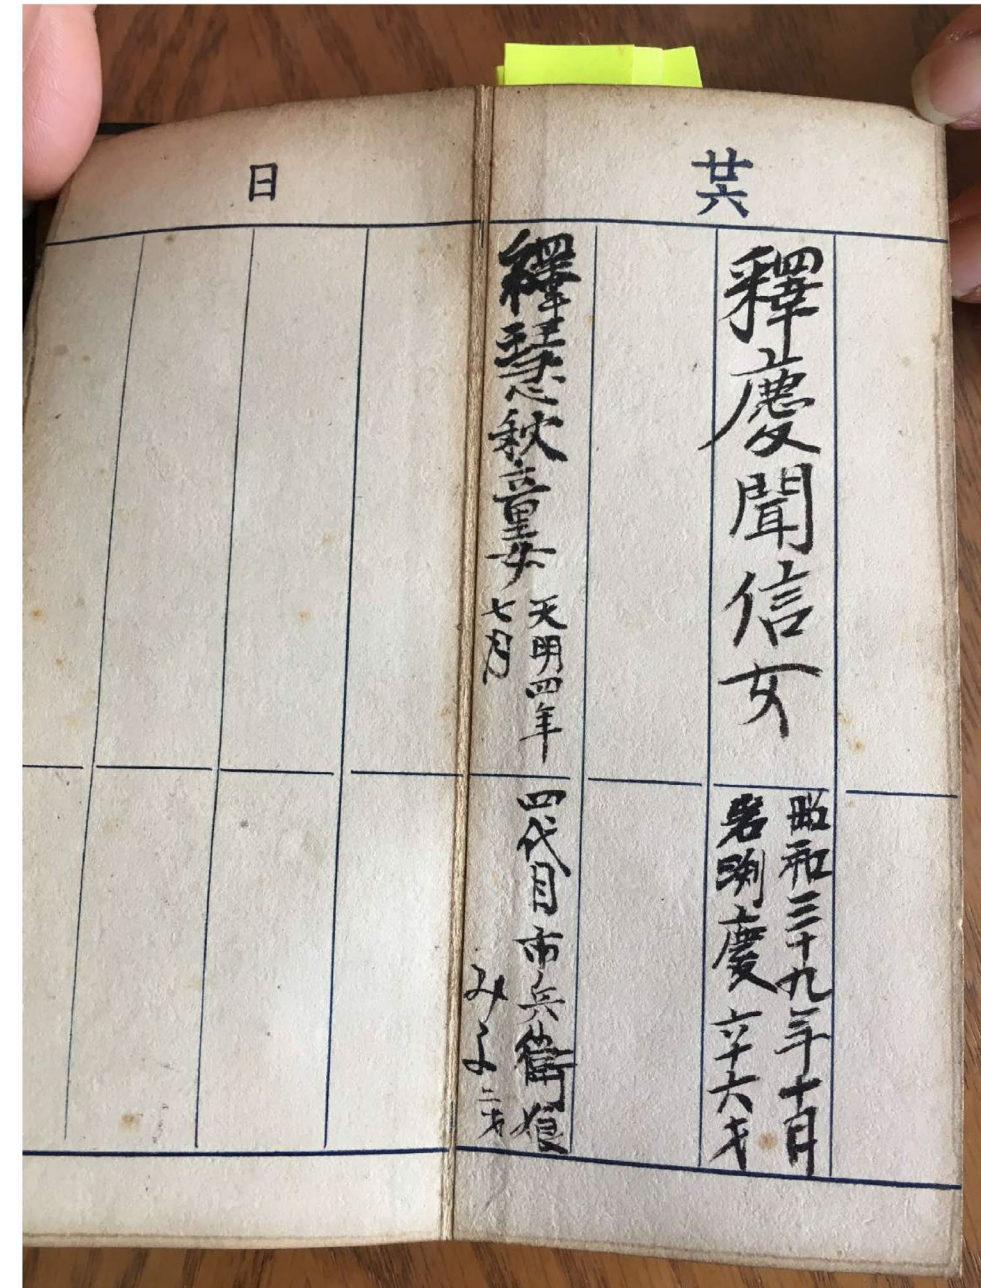 廿六
日
釋慶聞信女
昭和三十九年十月
岩渕慶 六十六才
釋慧秋童女
天明四年
七月
四代目市兵衛娘
みよ 二才